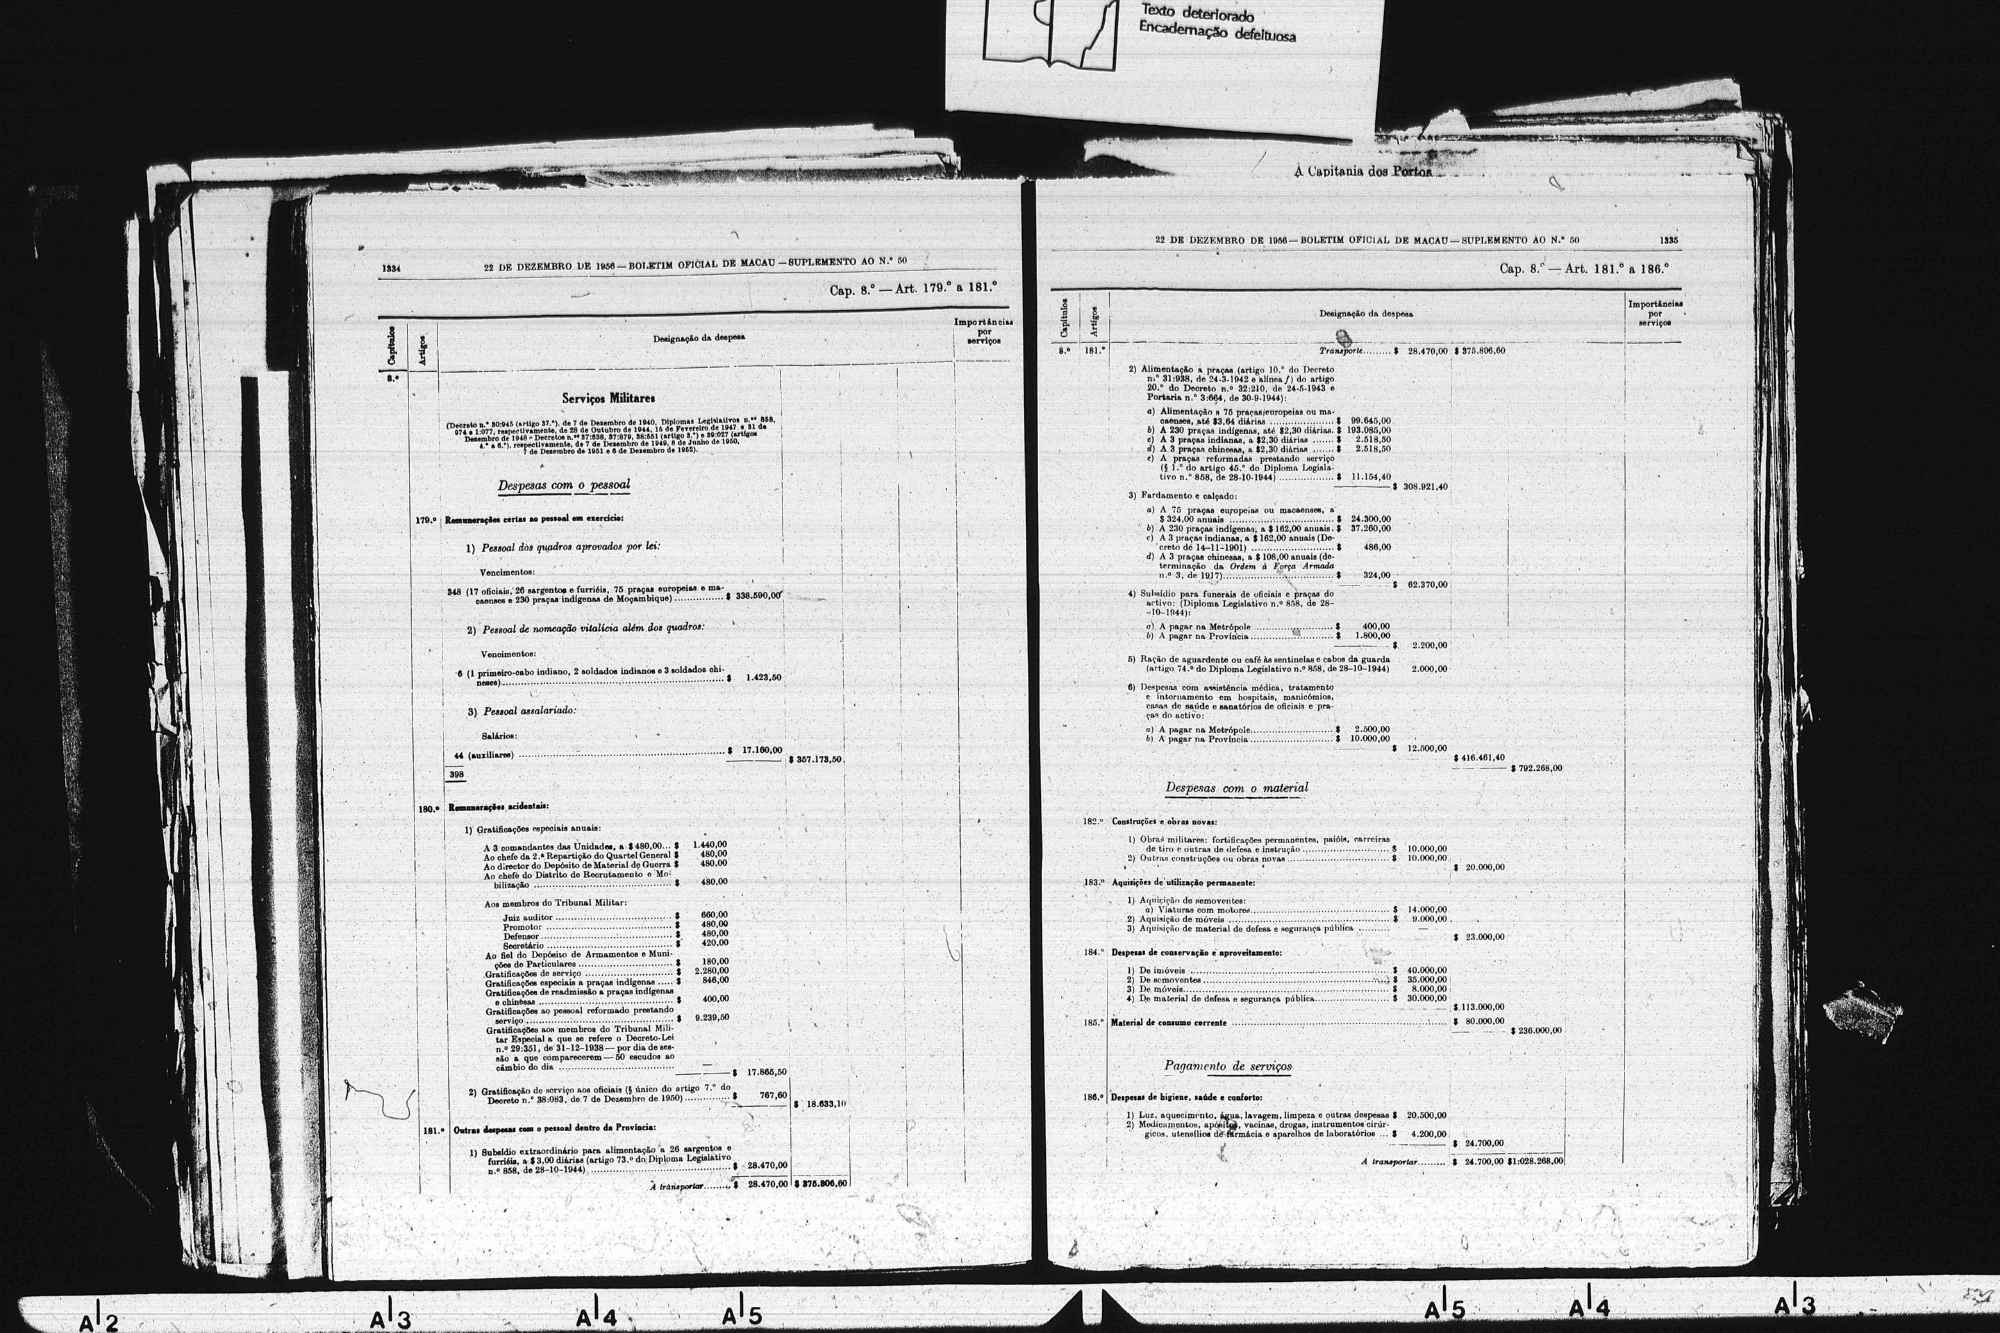 Texto deteriorado
Encadernação defeituosa
1334 22 DE DEZEMBRO DE 1956 — BOLETIM OFICIAL DE MACAU — SUPLEMENTO AO N.º 50
Cap. 8.º — Art. 179.º a 181.º
Capítulos Artigos Designação da despesa Importâncias por serviços
8.º
Serviços Militares
(Decreto n.º 30:945 (artigo 37.º), de 7 de Dezembro de 1940, Diplomas Legislativos n.ºs 858,
974 e 1:077, respectivamente, de 28 de Outubro de 1944, 15 de Fevereiro de 1947 e 31 de
Dezembro de 1948 e Decretos n.ºs 37:538, 37:879, 38:551 (artigo 3.º) e 39:027 (artigos
4.º a 6.º), respectivamente, de 7 de Dezembro de 1949, 8 de Junho de 1950,
7 de Dezembro de 1951 e 6 de Dezembro de 1952).
Despesas com o pessoal
179.º Remunerações certas ao pessoal em exercício:
1) Pessoal dos quadros aprovados por lei:
Vencimentos:
348 (17 oficiais, 26 sargentos e furriéis, 75 praças europeias e ma-
caenses e 230 praças indígenas de Moçambique) ............... $ 338.590,00
2) Pessoal de nomeação vitalícia além dos quadros:
Vencimentos:
6 (1 primeiro-cabo indiano, 2 soldados indianos e 3 soldados chi-
neses)............... $ 1.423,50
3) Pessoal assalariado:
Salários:
44 (auxiliares) ............... $ 17.160,00
$ 357.173,50
398
180.º Remunerações acidentais:
1) Gratificações especiais anuais:
A 3 comandantes das Unidades, a $ 480,00... $ 1.440,00
Ao chefe da 2.ª Repartição do Quartel General $ 480,00
Ao director do Depósito de Material de Guerra $ 480,00
Ao chefe do Distrito de Recrutamento e Mo-
bilização ............... $ 480,00
Aos membros do Tribunal Militar:
Juiz auditor ............... $ 660,00
Promotor ............... $ 480,00
Defensor ............... $ 480,00
Secretário ............... $ 420,00
Ao fiel do Depósito de Armamentos e Muni-
ções de Particulares ............... $ 180,00
Gratificações de serviço ............... $ 2.280,00
Gratificações especiais a praças indígenas ..... $ 846,00
Gratificações de readmissão a praças indígenas
e chinesas ............... $ 400,00
Gratificações ao pessoal reformado prestando
serviço ............... $ 9.239,50
Gratificações aos membros do Tribunal Mili-
tar Especial a que se refere o Decreto-Lei
n.º 29:351, de 31-12-1938 — por dia de ses-
são a que comparecerem — 50 escudos ao
câmbio do dia ............... —
$ 17.865,50
2) Gratificação de serviço aos oficiais (§ único do artigo 7.º do
Decreto n.º 38:083, de 7 de Dezembro de 1950) ............... $ 767,60
$ 18.633,10
181.º Outras despesas com o pessoal dentro da Província:
1) Subsídio extraordinário para alimentação a 26 sargentos e
furriéis, a $ 3,00 diárias (artigo 73.º do Diploma Legislativo
n.º 858, de 28-10-1944) ............... $ 28.470,00
A transportar........ $ 28.470,00 $ 375.806,60
À Capitania dos Portos
22 DE DEZEMBRO DE 1956 — BOLETIM OFICIAL DE MACAU — SUPLEMENTO AO N.º 50 1335
Cap. 8.º — Art. 181.º a 186.º
Capítulos Artigos Designação da despesa Importâncias por serviços
8.º 181.º Transporte......... $ 28.470,00 $ 375.806,60
2) Alimentação a praças (artigo 10.º do Decreto
n.º 31:938, de 24-3-1942 e alínea f) do artigo
20.º do Decreto n.º 32:210, de 24-5-1943 e
Portaria n.º 3:664, de 30-9-1944):
a) Alimentação a 75 praças europeias ou ma-
caenses, até $3,64 diárias ............... $ 99.645,00
b) A 230 praças indígenas, até $2,30 diárias. $ 193.085,00
c) A 3 praças indianas, a $2,30 diárias ...... $ 2.518,50
d) A 3 praças chinesas, a $2,30 diárias ...... $ 2.518,50
e) A praças reformadas prestando serviço
(§ 1.º do artigo 45.º do Diploma Legisla-
tivo n.º 858, de 28-10-1944) ............... $ 11.154,40
$ 308.921,40
3) Fardamento e calçado:
a) A 75 praças europeias ou macaenses, a
$ 324,00 anuais ............... $ 24.300,00
b) A 230 praças indígenas, a $ 162,00 anuais. $ 37.260,00
c) A 3 praças indianas, a $ 162,00 anuais (De-
creto de 14-11-1901) ............... $ 486,00
d) A 3 praças chinesas, a $ 108,00 anuais (de-
terminação da Ordem à Força Armada
n.º 3, de 1917)............... $ 324,00
$ 62.370,00
4) Subsídio para funerais de oficiais e praças do
activo: (Diploma Legislativo n.º 858, de 28-
-10-1944):
a) A pagar na Metrópole ............... $ 400,00
b) A pagar na Província ............... $ 1.800,00
$ 2.200,00
5) Ração de aguardente ou café às sentinelas e cabos da guarda
(artigo 74.º do Diploma Legislativo n.º 858, de 28-10-1944) 2.000,00
6) Despesas com assistência médica, tratamento
e internamento em hospitais, manicómios,
casas de saúde e sanatórios de oficiais e pra-
ças do activo:
a) A pagar na Metrópole............... $ 2.500,00
b) A pagar na Província ............... $ 10.000,00
$ 12.500,00
$ 416.461,40
$ 792.268,00
Despesas com o material
182.º Construções e obras novas:
1) Obras militares: fortificações permanentes, paióis, carreiras
de tiro e outras de defesa e instrução ............... $ 10.000,00
2) Outras construções ou obras novas ............... $ 10.000,00
$ 20.000,00
183.º Aquisições de utilização permanente:
1) Aquisição de semoventes:
a) Viaturas com motores............... $ 14.000,00
2) Aquisição de móveis ............... $ 9.000,00
3) Aquisição de material de defesa e segurança pública ......... —
$ 23.000,00
184.º Despesas de conservação e aproveitamento:
1) De imóveis ............... $ 40.000,00
2) De semoventes ............... $ 35.000,00
3) De móveis............... $ 8.000,00
4) De material de defesa e segurança pública............... $ 30.000,00
$ 113.000,00
185.º Material de consumo corrente ............... $ 80.000,00
$ 236.000,00
Pagamento de serviços
186.º Despesas de higiene, saúde e conforto:
1) Luz, aquecimento, água, lavagem, limpeza e outras despesas $ 20.500,00
2) Medicamentos, apósitos, vacinas, drogas, instrumentos cirúr-
gicos, utensílios de farmácia e aparelhos de laboratórios ... $ 4.200,00
$ 24.700,00
A transportar......... $ 24.700,00 $1:028.268,00
A2 A3 A4 A5 A5 A4 A3